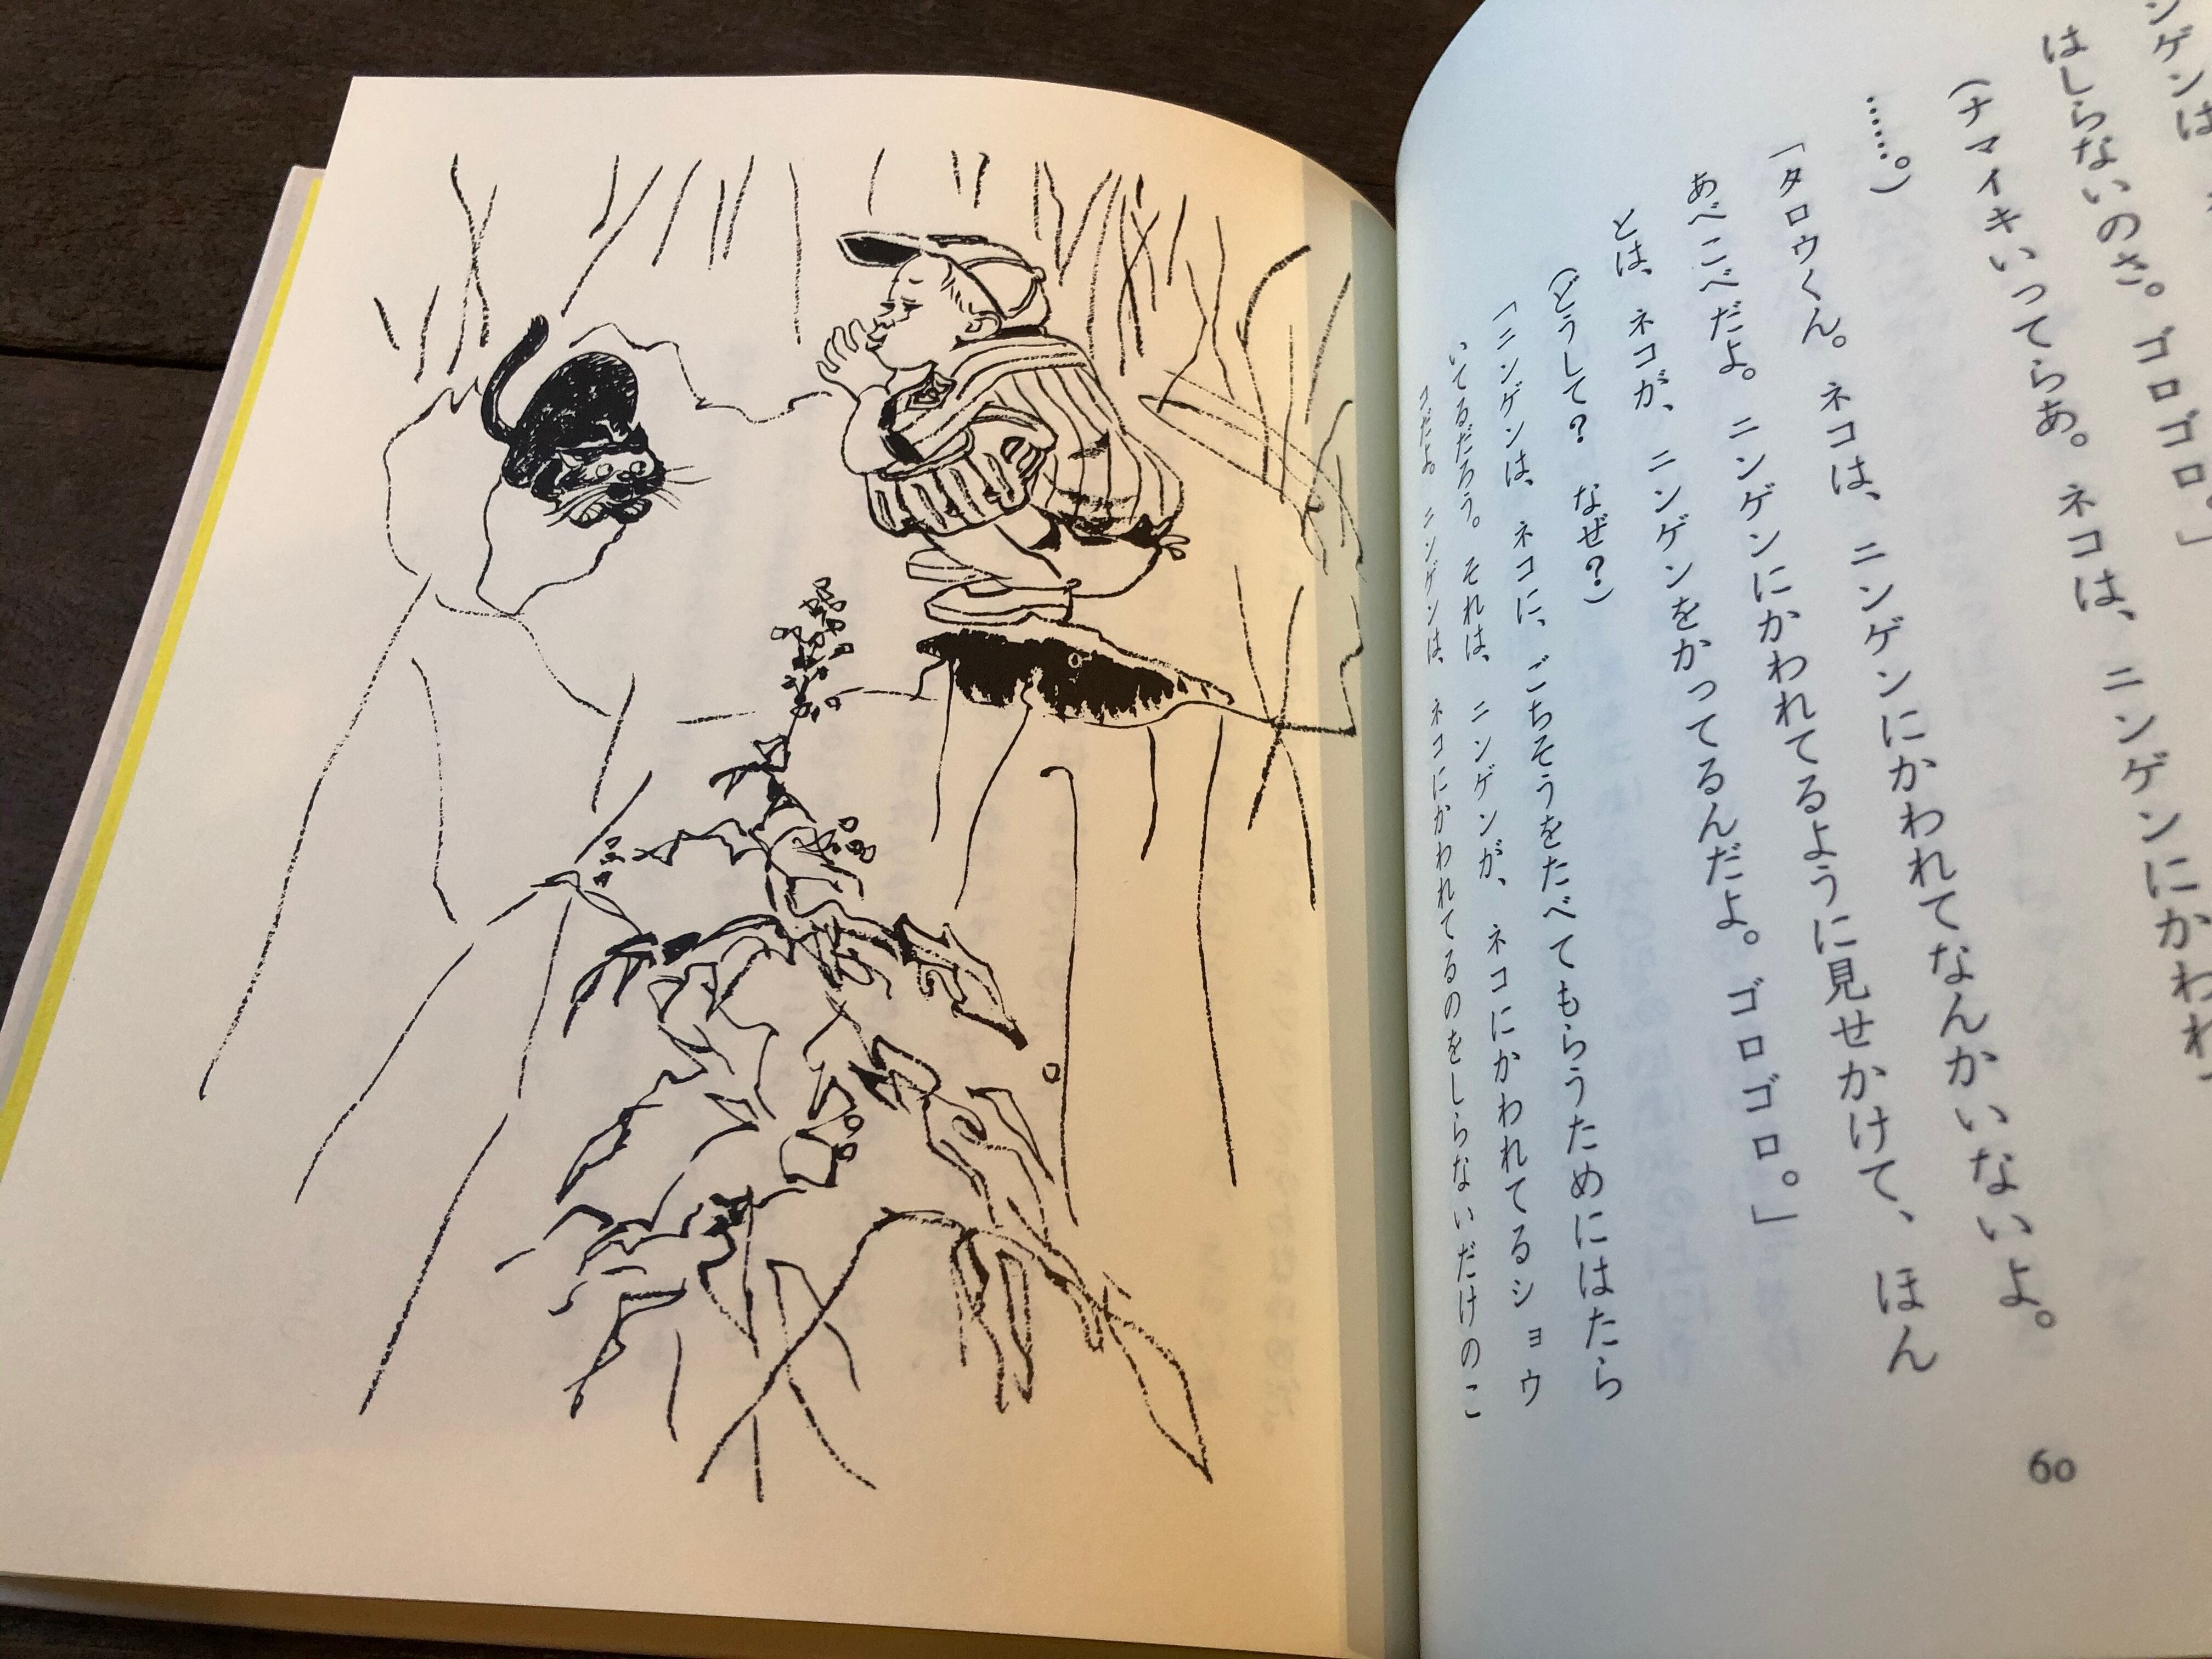 ンゲンは
はしらないのさ。ゴロゴロ。」
(ナマイキいってらあ。ネコは、ニンゲンにかわれ
……。)
「タロウくん。ネコは、ニンゲンにかわれてなんかいないよ。
あべこべだよ。ニンゲンにかわれてるように見せかけて、ほん
とは、ネコが、ニンゲンをかってるんだよ。ゴロゴロ。」
(どうして? なぜ?)
「ニンゲンは、ネコに、ごちそうをたべてもらうためにはたら
いてるだろう。それは、ニンゲンが、ネコにかわれてるショウ
コだよ。ニンゲンは、ネコにかわれてるのをしらないだけのこ
60